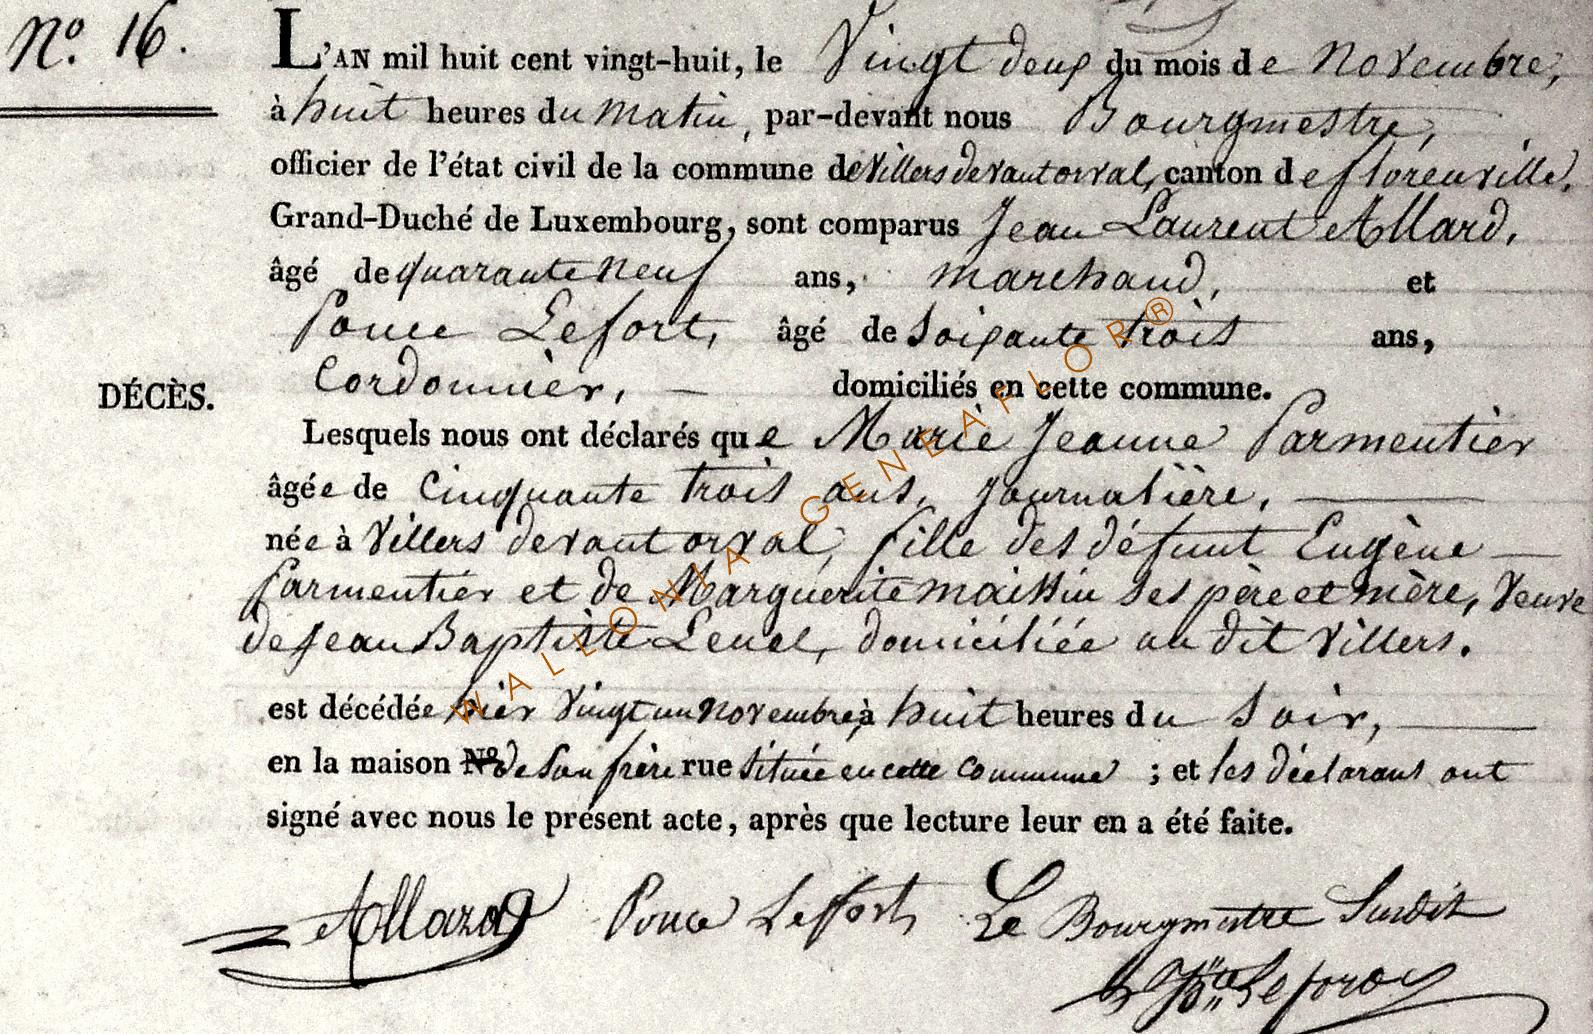 No. 16.
L'AN mil huit cent vingt-huit, le Vingt deux du mois de novembre,
à huit heures du matin, par-devant nous Bourgmestre,
officier de l'état civil de la commune de Villers devant orval, canton de florenville,
Grand-Duché de Luxembourg, sont comparus Jean Laurent Allard,
âgé de quarante neuf ans, marchand, et
Ponce Lefort, âgé de Soixante trois ans,
Cordonnier, — domiciliés en cette commune.
DÉCÈS.
Lesquels nous ont déclarés que Marie Jeanne Parmentier
âgée de Cinquante trois ans, journalière, —
née à Villers devant orval, fille des défunt Eugène —
Parmentier et de Marguerite maissin ses père et mère, Veuve
de jean Baptiste Lenel, domiciliée au dit Villers.
est décédée hier Vingt un novembre, à huit heures du soir, —
en la maison No de son frère rue située en cette commune ; et les déclarant ont
signé avec nous le présent acte, après que lecture leur en a été faite.
Allard Ponce Leffort Le Bourgmestre Susdit
WALLONIA-GENEAFLOR®